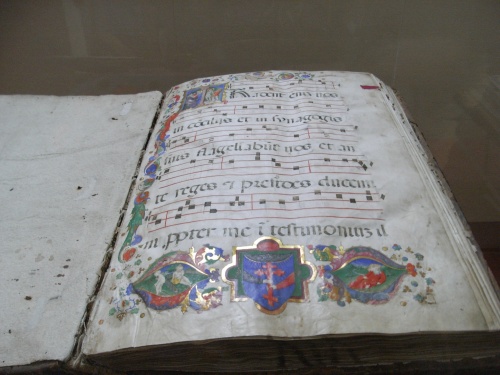 TRadent eni3 vos
in cōcilijs et in synagogis
suis flagellabūt vos et an
te reges et presides ducemi
ni ꝓpter me ī testimoniuz